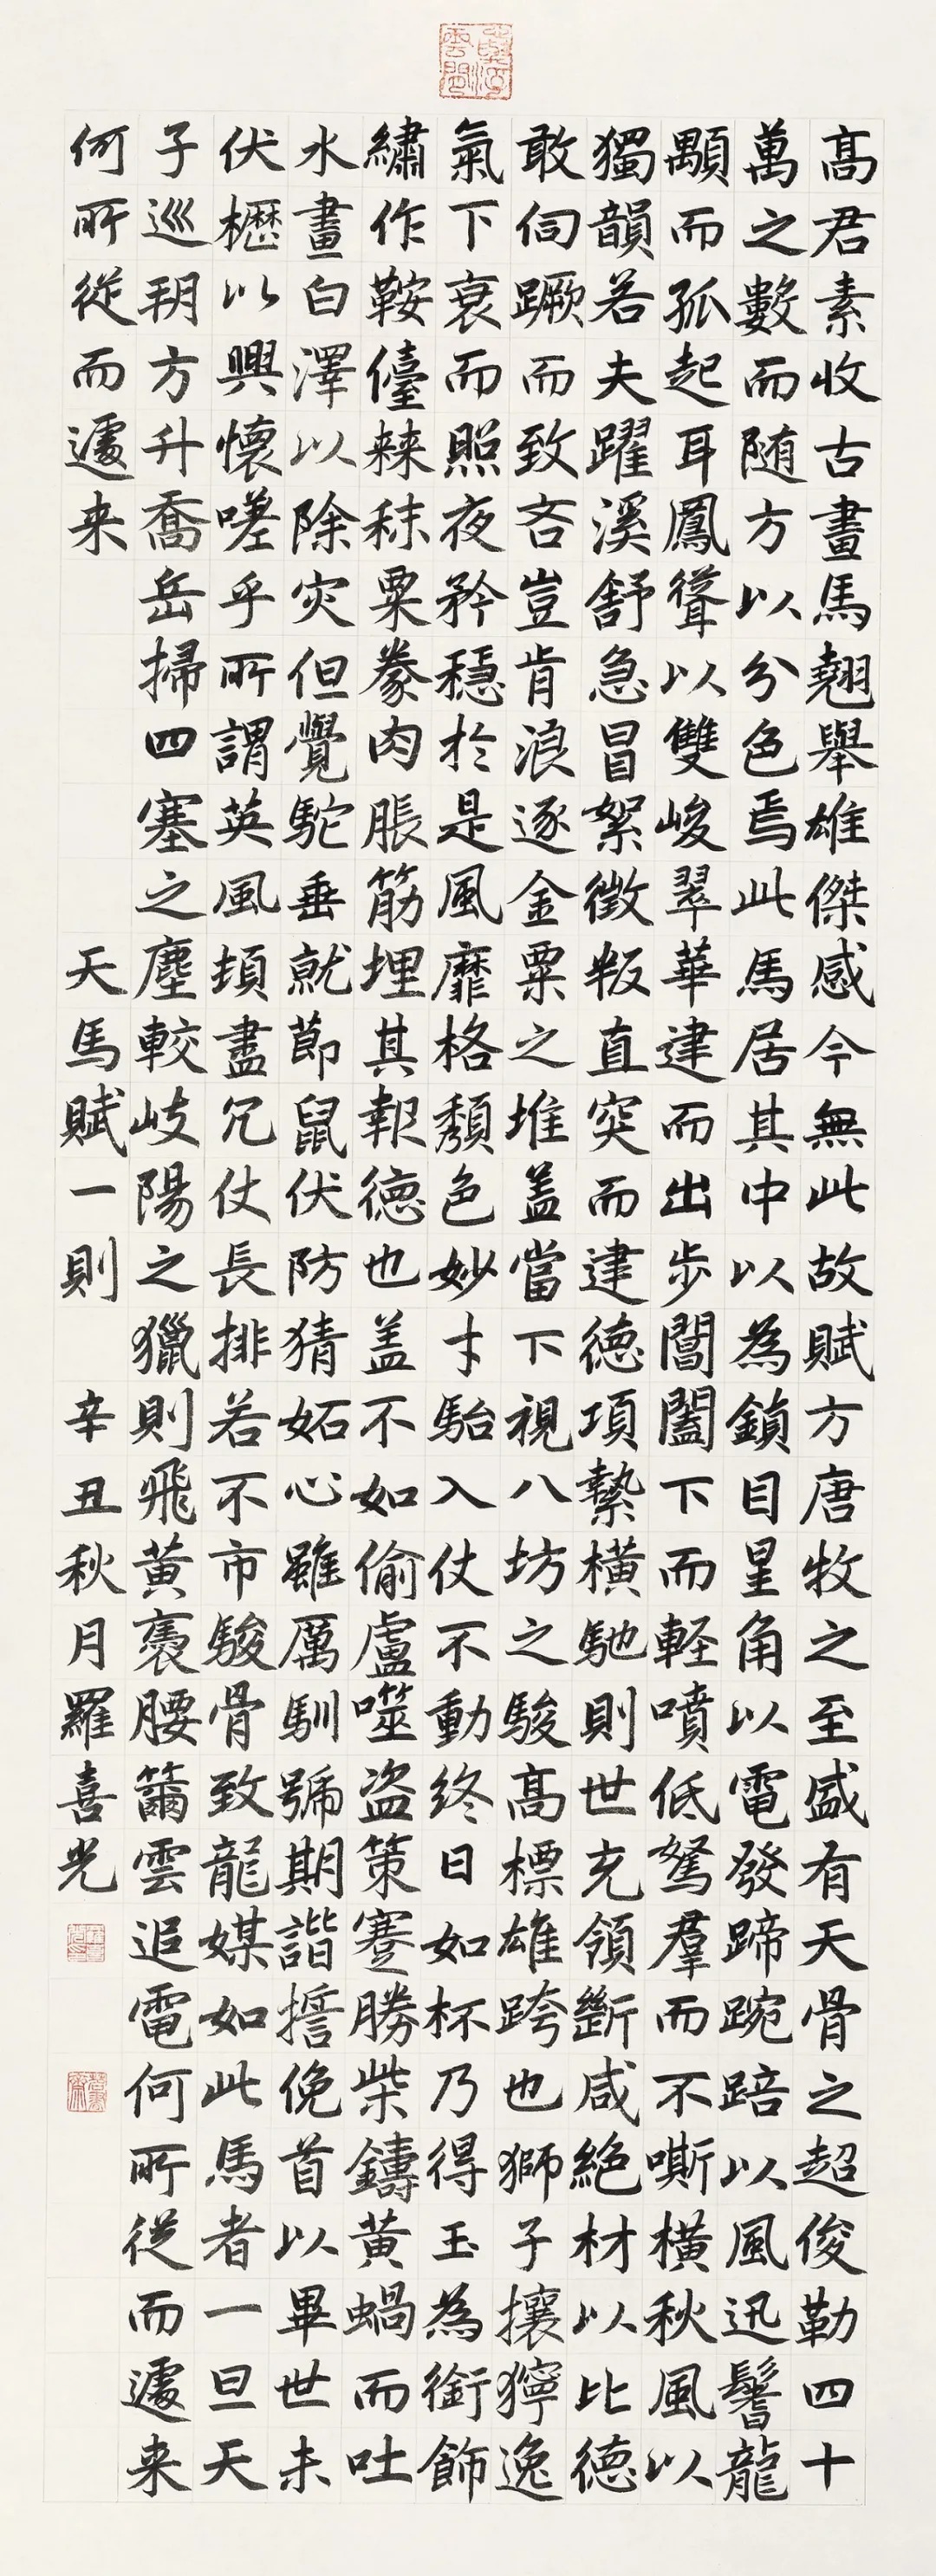 高君素收古畫馬翹舉雄傑感今無此故賦方唐牧之至盛有天骨之超俊勒四十
萬之數而随方以分色焉此馬居其中以為鎖目星角以電發蹄踠踣以風迅鬐龍
顒而孤起耳鳳聳以雙峻翠華建而出步閶闔下而軽噴低駑群而不嘶橫秋風以
獨韻若夫躍溪舒急冒絮徵叛直突而建德項縶橫馳則世充領斷咸絕材以比德
敢伺蹶而致吝豈肯浪逐金粟之堆盖當下視八坊之駿高標雄跨也獅子攘獰逸
氣下衰而照夜矜穩於是風靡格頽色妙才駘入仗不動終日如杯乃得玉為銜飾
繡作鞍儓棘秣粟豢肉脹筋埋其報德也盖不如偷盧噬盗策蹇勝柴鑄黃蝸而吐
水畫白澤以除灾但覺駝垂就節鼠伏防猜妬心雖厲馴號期諧擔俛首以畢世未
伏櫪以興懷嗟乎所謂英風頓盡冗仗長排若不市駿骨致龍媒如此馬者一旦天
子巡朔方升喬岳掃四塞之塵較岐陽之獵則飛黃褭腰籋雲追電何所從而遽来
何所從而遽来
天馬賦一則
辛丑秋月羅喜光